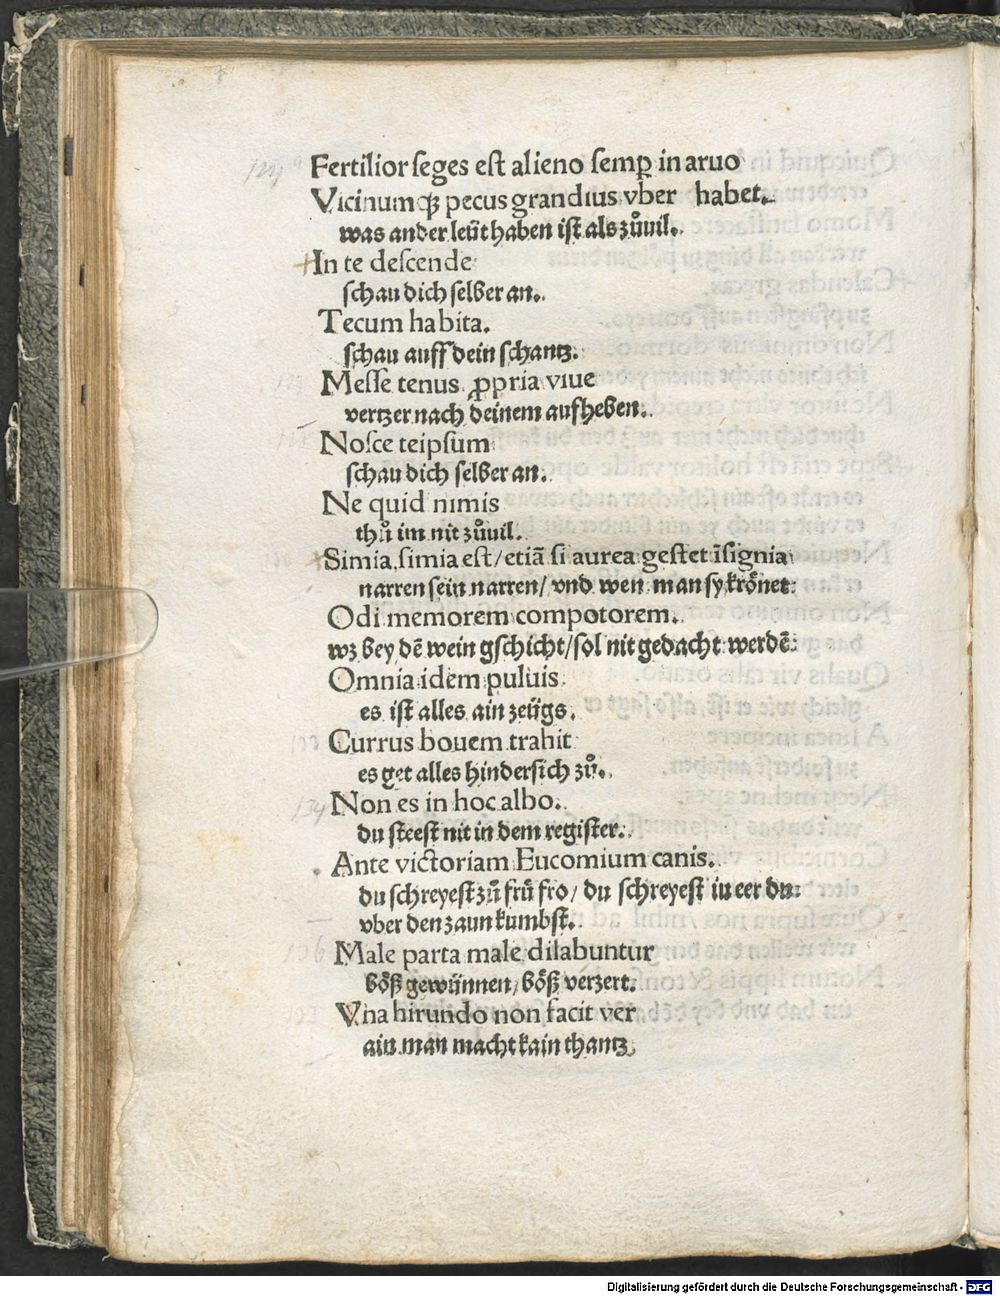 Fertilior seges est alieno semꝑ in aruo
Vicinumqꝫ pecus grandius vber habet.
was ander leüt haben ist als zůuil.
In te descende
schau dich selber an.
Tecum habita.
schau auff dein schantz.
Messe tenus ꝓpria viue
vertzer nach deinem aufheben.
Nosce teipsum
schau dich selber an.
Ne quid nimis
thů im nit zůuil.
Simia, simia est/ etiã si aurea gestet ĩsignia
narren sein narren/ vnd wen man sy krőnet
Odi memorem compotorem.
wz bey dē wein gschicht/ sol nit gedacht werdē
Omnia idem puluis.
es ist alles ain zeügs.
Currus bouem trahit
es get alles hindersich zů.
Non es in hoc albo.
du steest nit in dem register.
Ante victoriam Eucomium canis.
du schreyest zů frů fro/ du schreyest iu eer du
vber den zaun kumbst.
Male parta male dilabuntur
bőß gewünnen/ bőß verzert.
Vna hirundo non facit ver
ain man macht kain thantz
134
Digitalisierung gefördert durch die Deutsche Forschungsgemeinschaft - DFG